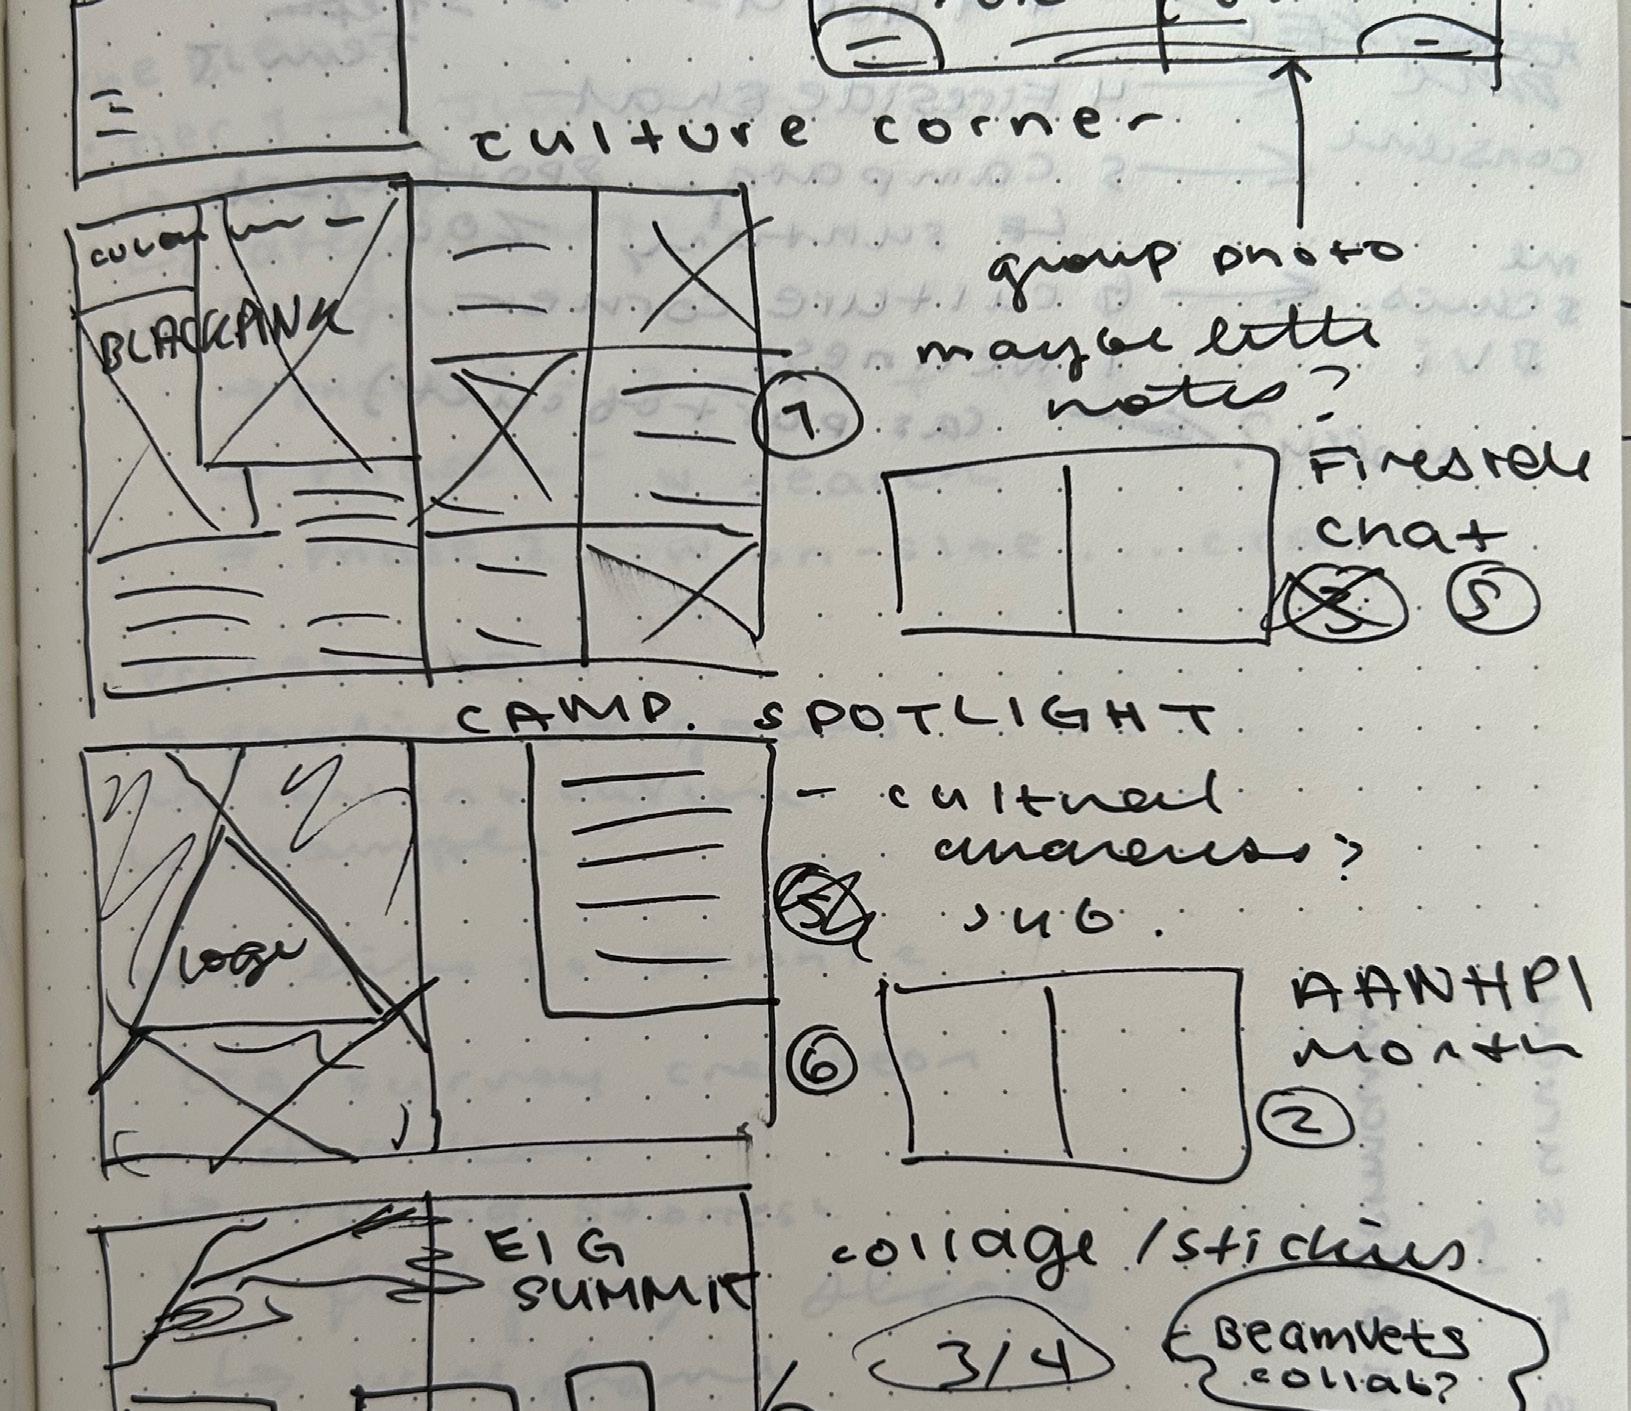 culture corner
group photo
maybe little
notes?
BLACKPINK
7
Fireside
chat
3 5
CAMP. SPOTLIGHT
- cultural
awareness?
sub.
logo
5
6
AANHPI
month
2
EIG
SUMMIT
collage/stickies
3/4
Beamvets
collab?